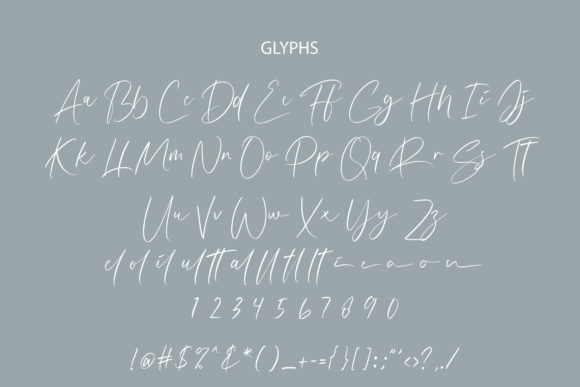 GLYPHS
Aa Bb Cc Dd Ee Ff Gg Hh Ii Jj
Kk Ll Mm Nn Oo Pp Qq Rr Ss Tt
Uu Vv Ww Xx Yy Zz
1 2 3 4 5 6 7 8 9 0
!@#$%^&*()_+-={}[]:;"'<>?,./